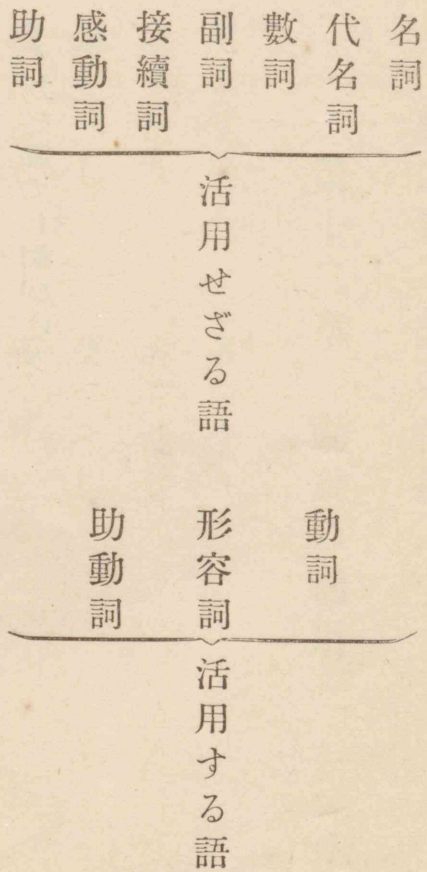 名詞
代名詞
數詞
副詞
接續詞
感動詞
助詞
活用せざる語
動詞
形容詞
助動詞
活用する語